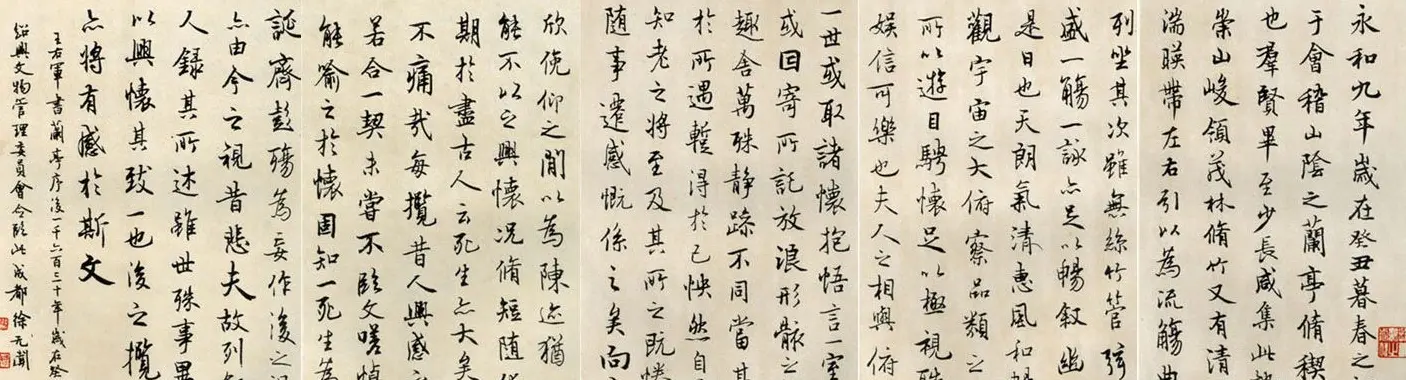 永和九年歲在癸丑暮春之
于會稽山陰之蘭亭脩稧
也羣賢畢至少長咸集此
崇山峻領茂林脩竹又有清
湍暎帶左右引以為流觴曲
列坐其次雖無絲竹管弦
盛一觴一詠亦足以暢叙幽
是日也天朗氣清惠風和暢
觀宇宙之大俯察品類之
所以遊目騁懷足以極視聽
娛信可樂也夫人之相與俯
一世或取諸懷抱悟言一室
或因寄所託放浪形骸之
趣舍萬殊静躁不同當其
於所遇蹔得於己怏然自
知老之將至及其所之既惓
随事遷感慨係之矣向
欣俛仰之閒以為陳迹猶
能不以之興懷況脩短随化
期於盡古人云死生亦大矣
不痛哉每攬昔人興感
若合一契未嘗不臨文嗟悼
能喻之於懷固知一死生為
誕齊彭殤為妄作後之視
亦由今之視昔悲夫故列
人錄其所述雖世殊事異
以興懷其致一也後之攬
亦將有感於斯文
王右軍書蘭亭序後一千六百三十年歲在癸
紹興文物管理委員會令臨此成都徐无聞